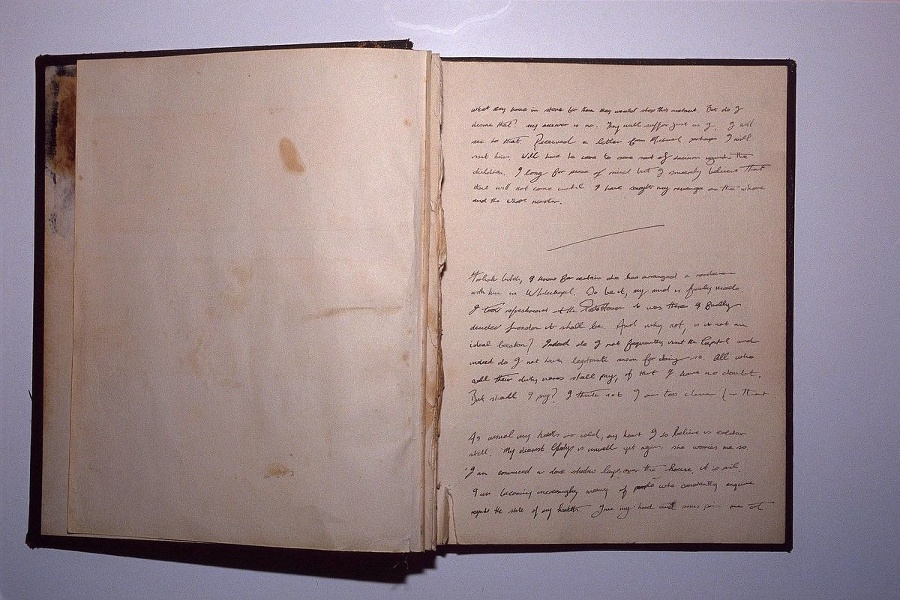 what they have in store for them they would stop this instant. But do I
desire that? my answer is no. They will suffer just as I. I will
see to that. Received a letter from Michael perhaps I will
visit him. Will have to come to some sort of decision regards the
children. I long for peace of mind but I sincerely believe that
that will not come until I have sought my revenge on the whore
and the whore master.
Foolish bitch, I know for certain she has arranged a rendezvous
with him in Whitechapel. So be it, my mind is firmly made
I took refreshment at the Poste House it was there I finally
decided London it shall be. And why not, is it not an
ideal location? Indeed do I not frequently visit the Capital and
indeed do I not have legitimate reason for doing so. All who
sell their dirty wares shall pay, of that I have no doubt.
But shall I pay? I think not I am too clever for that
As usual my hands are cold, my heart I do believe is colder
still. My dearest Gladys is unwell yet again, she worries me so.
I am convinced a dark shadow lays over the house, it is evil.
I am becoming increasingly weary of people who constantly enquire
regards the state of my health. True my head and arms pain me at